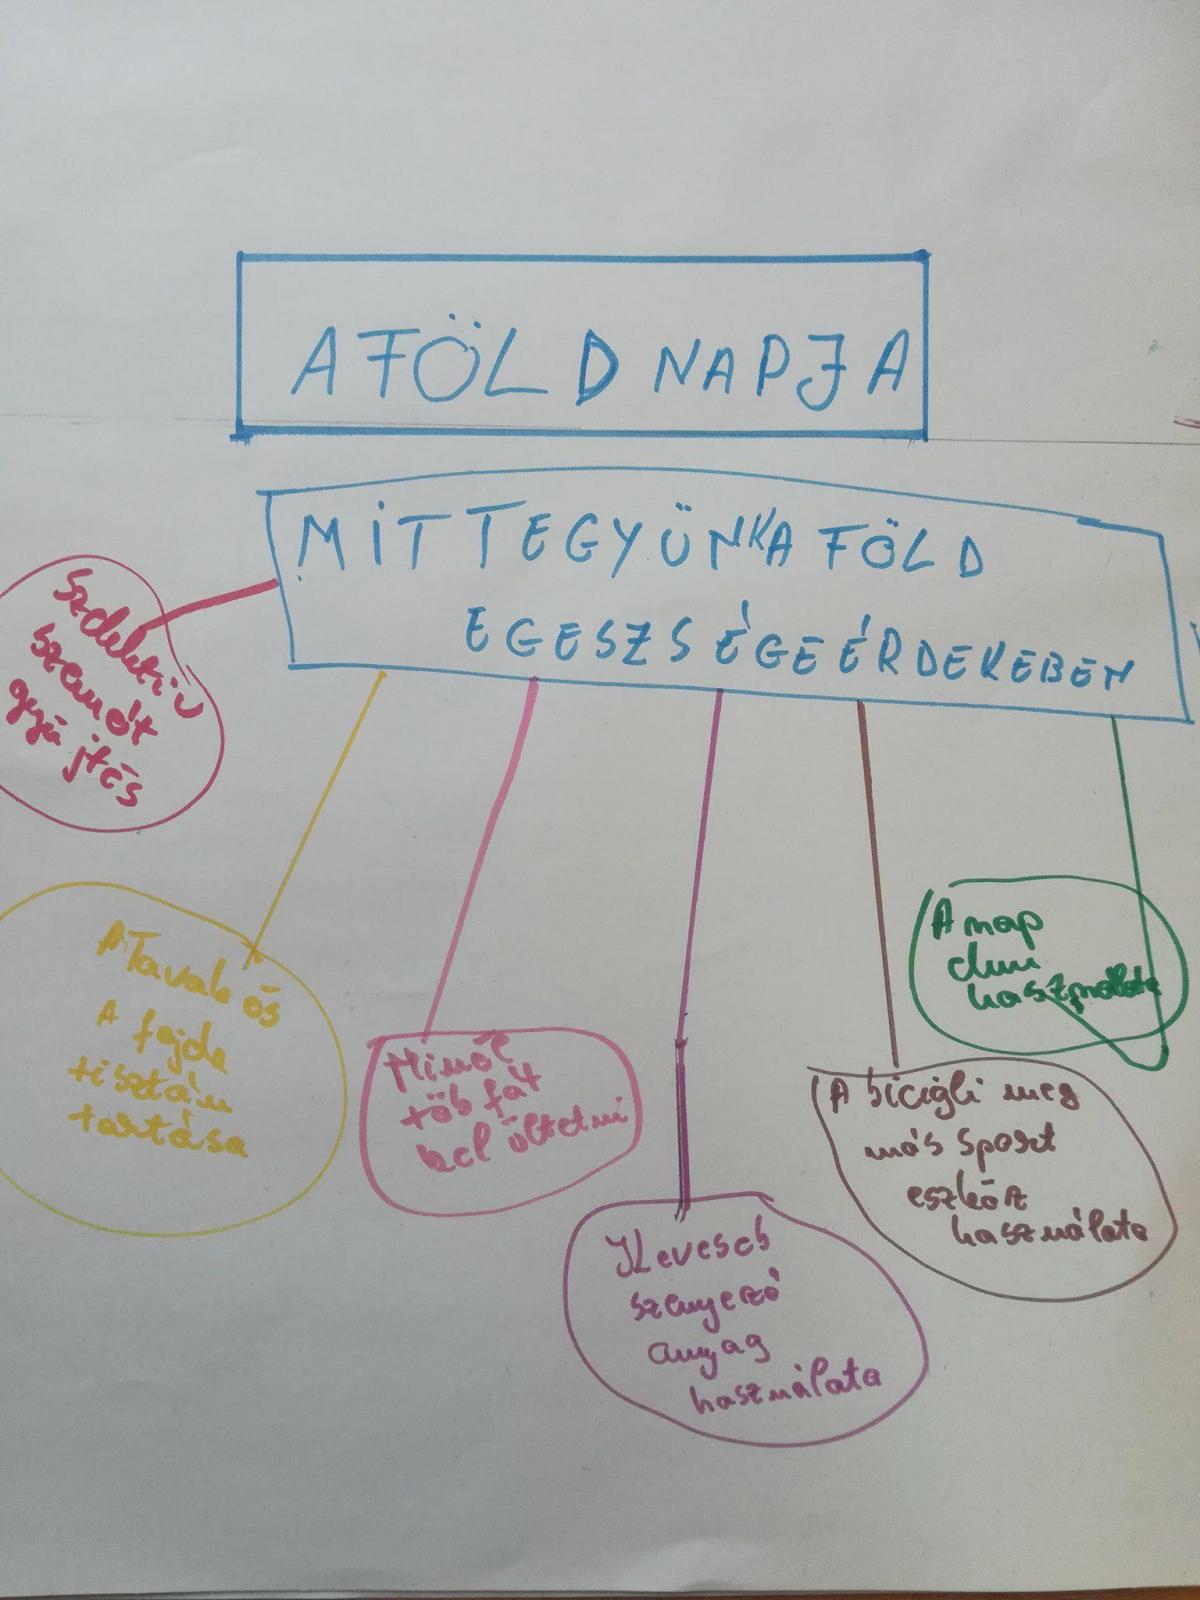 A FÖLD NAPJA
MIT TEGYÜNK A FÖLD
EGESZSÉGE ÉRDEKEBEN
Szelektiv
szemét
gyüjtés
A Tavak és
A fojok
tisztán
tartása
Minél
töb fát
kel ültetni
Kevesebb
szenyező
anyag
használata
A bicigli meg
más sport
eszköz
használata
A nap
használata